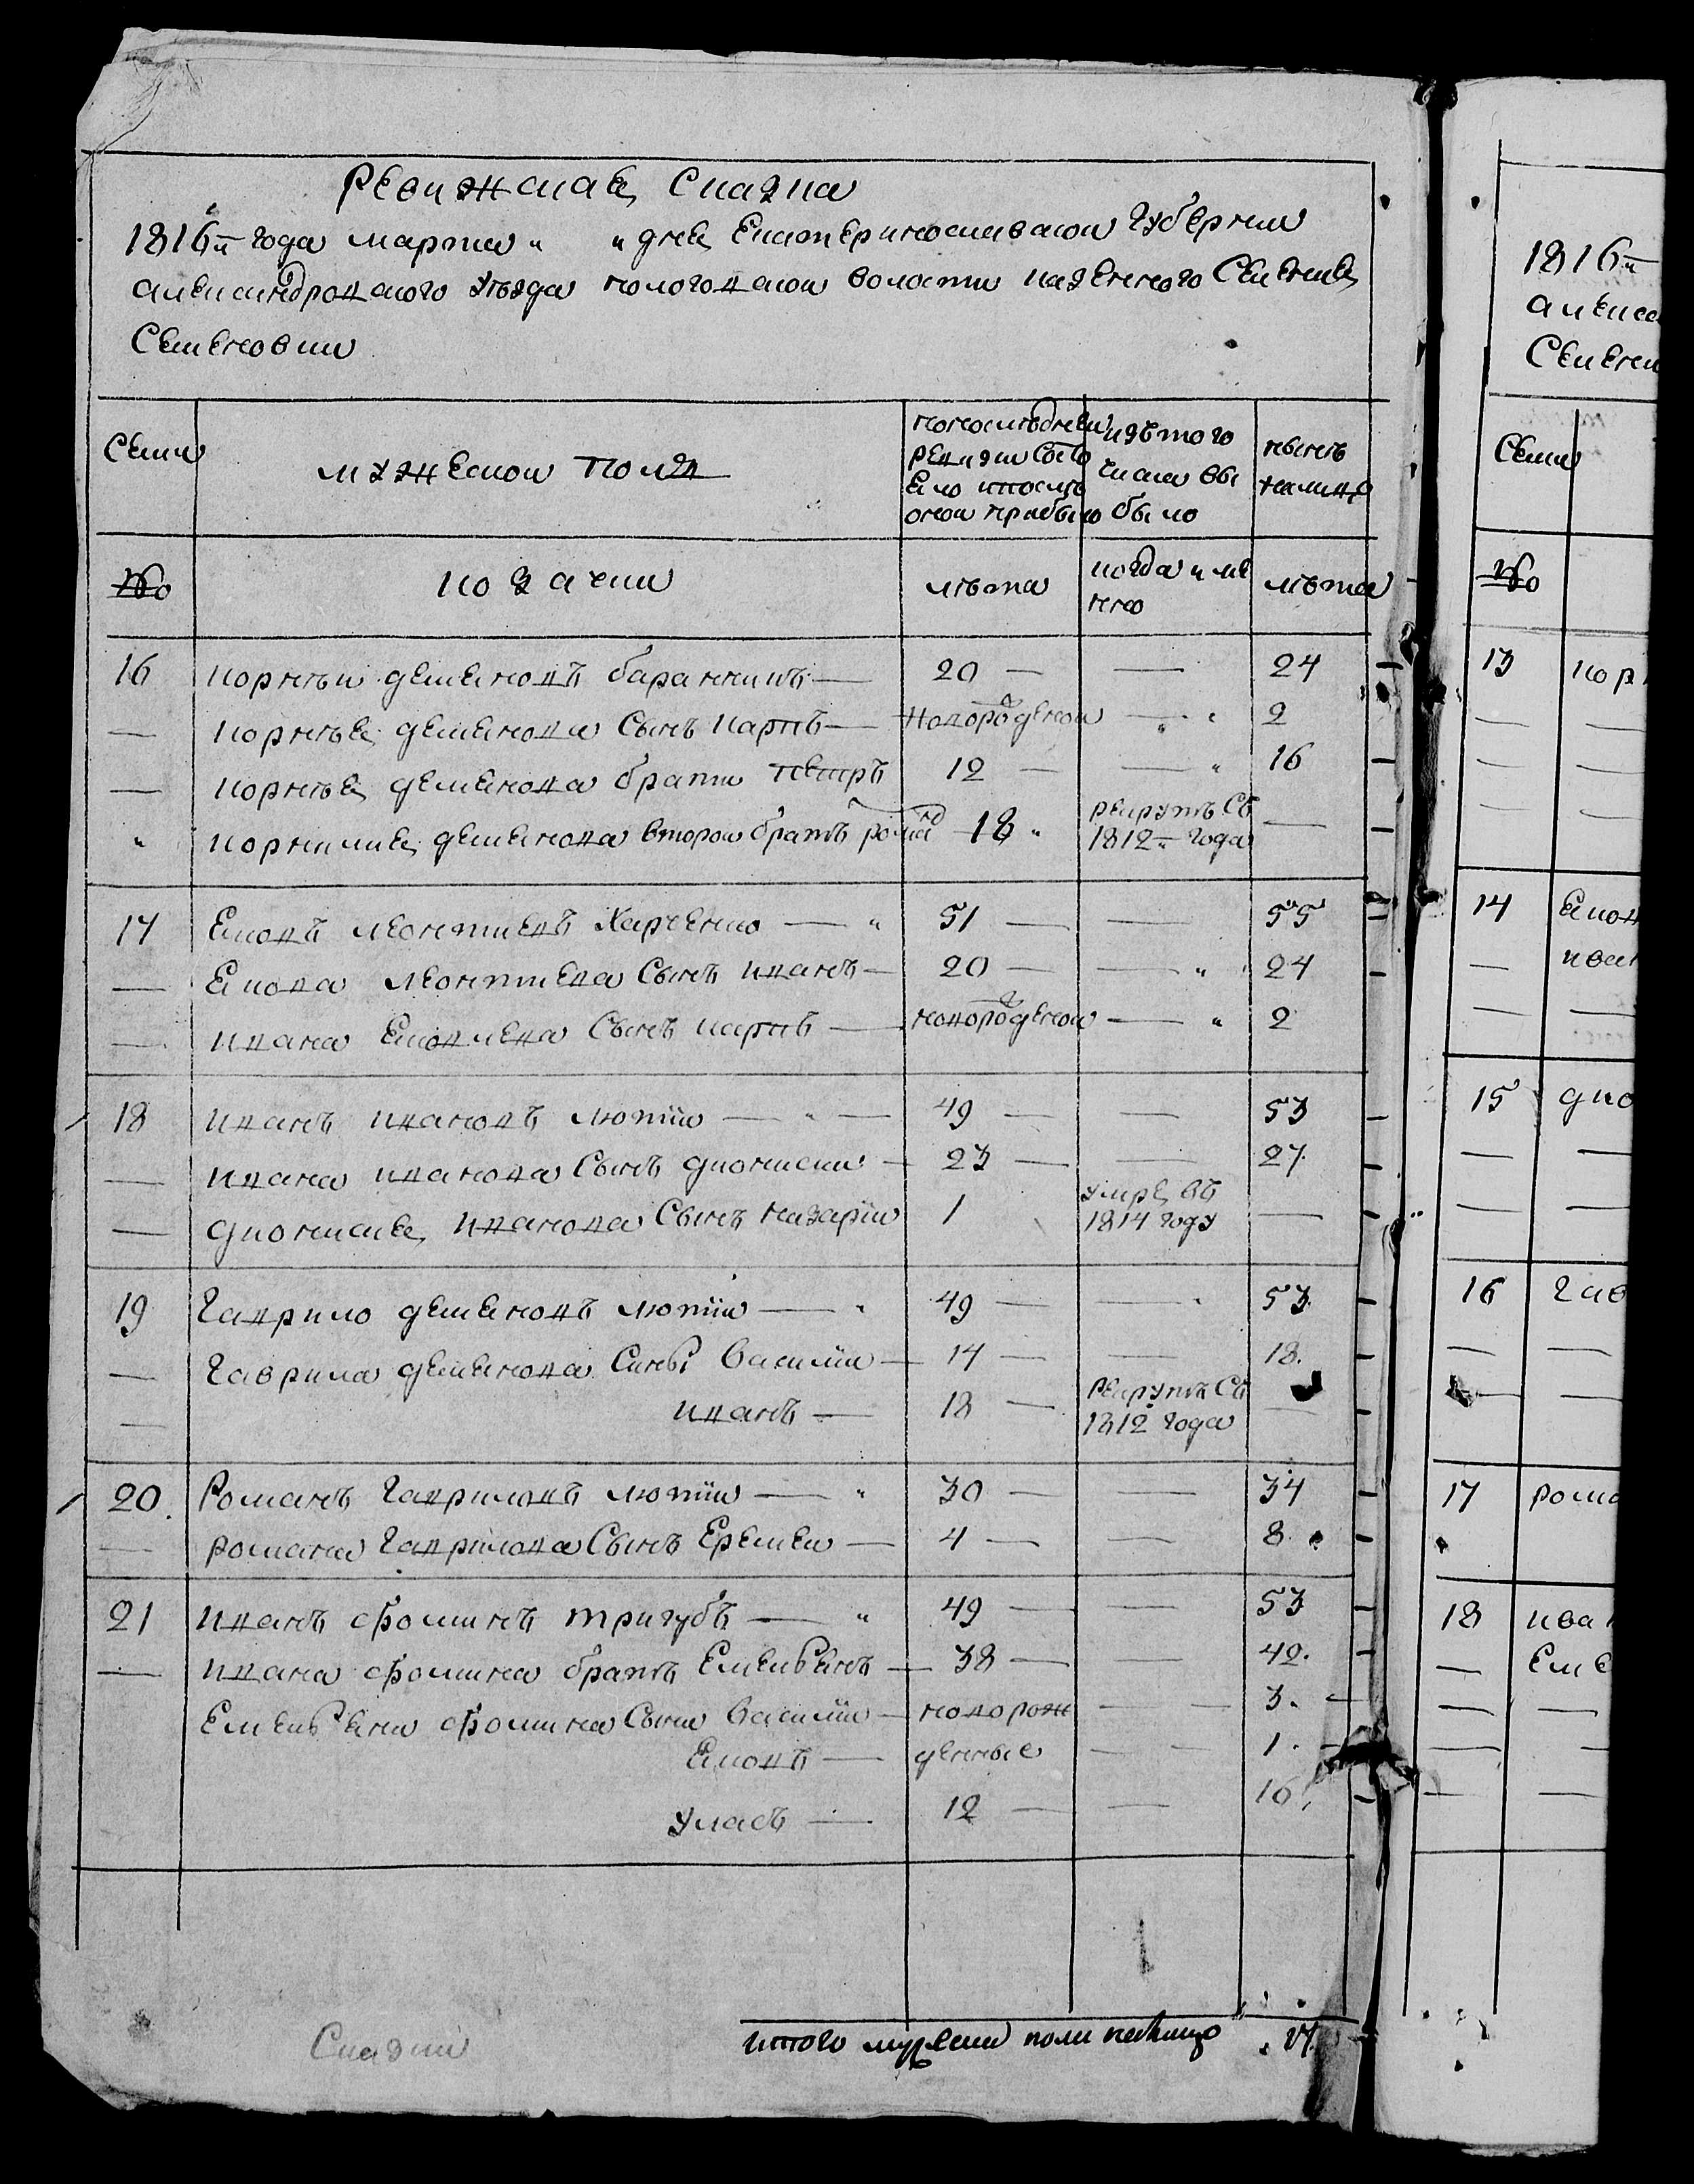 Ревижская Сказка
1816й года марта " " дня Екатеринославской губернии
александровского уезда пологовской волости казенного Селения
Семеновки
Семи
мужеской полъ
попоследней ревизии состояло ипосле оной прибыло
изътого числа выбыло
ныне налицо
№
козачки
лѣта
когда именно
лѣта
16 корнѣй деменовъ баранникъ — 20 — — 24
— корнѣя деменова сынъ карпъ — новорожденой — " 2
— корнѣя деменова братъ петръ 12 — — " 16
" корнилия деменова второй братъ роман 18 " рекрутъ Съ 1812го года —
17 Яковъ леонтиевъ Харченко — " 51 — — 55
— Якова леонтиева сынъ иванъ — 20 — — " 24
— ивана Яковлева сынъ карпъ — новорожденой — " 2
18 иванъ ивановъ лютiи — " — 49 — — 53
— ивана иванова сынъ дионисии — 23 — — 27.
— дионисия иванова сынъ назарiи 1 умре въ 1814 году —
19 гаврило деменовъ лютiи — " 49 — — 53.
— гаврила деменова сины василiи — 14 — — 18.
— иванъ — 18 — рекрутъ Съ 1812 года —
20. Романъ гавриловъ лютiи — " 30 — — 34
— романа гаврилова сынъ Еремеи — 4 — — 8.
21 иванъ фоминъ тригубъ — " 49 — — 53
— ивана фомина братъ Емельянъ — 38 — — 42.
Емельяна фомина сыни василiи — новорож — — 3. —
Яковъ — денные — — 1. —
уласъ — 12 — — 16.
итого мужеска пола налицо 17.
Сказки
1816й
алекса
Селени
Семи
№
13 кор
14 Яков
— иван
15 дио
16 гав
17 рома
18 иван
— Еме